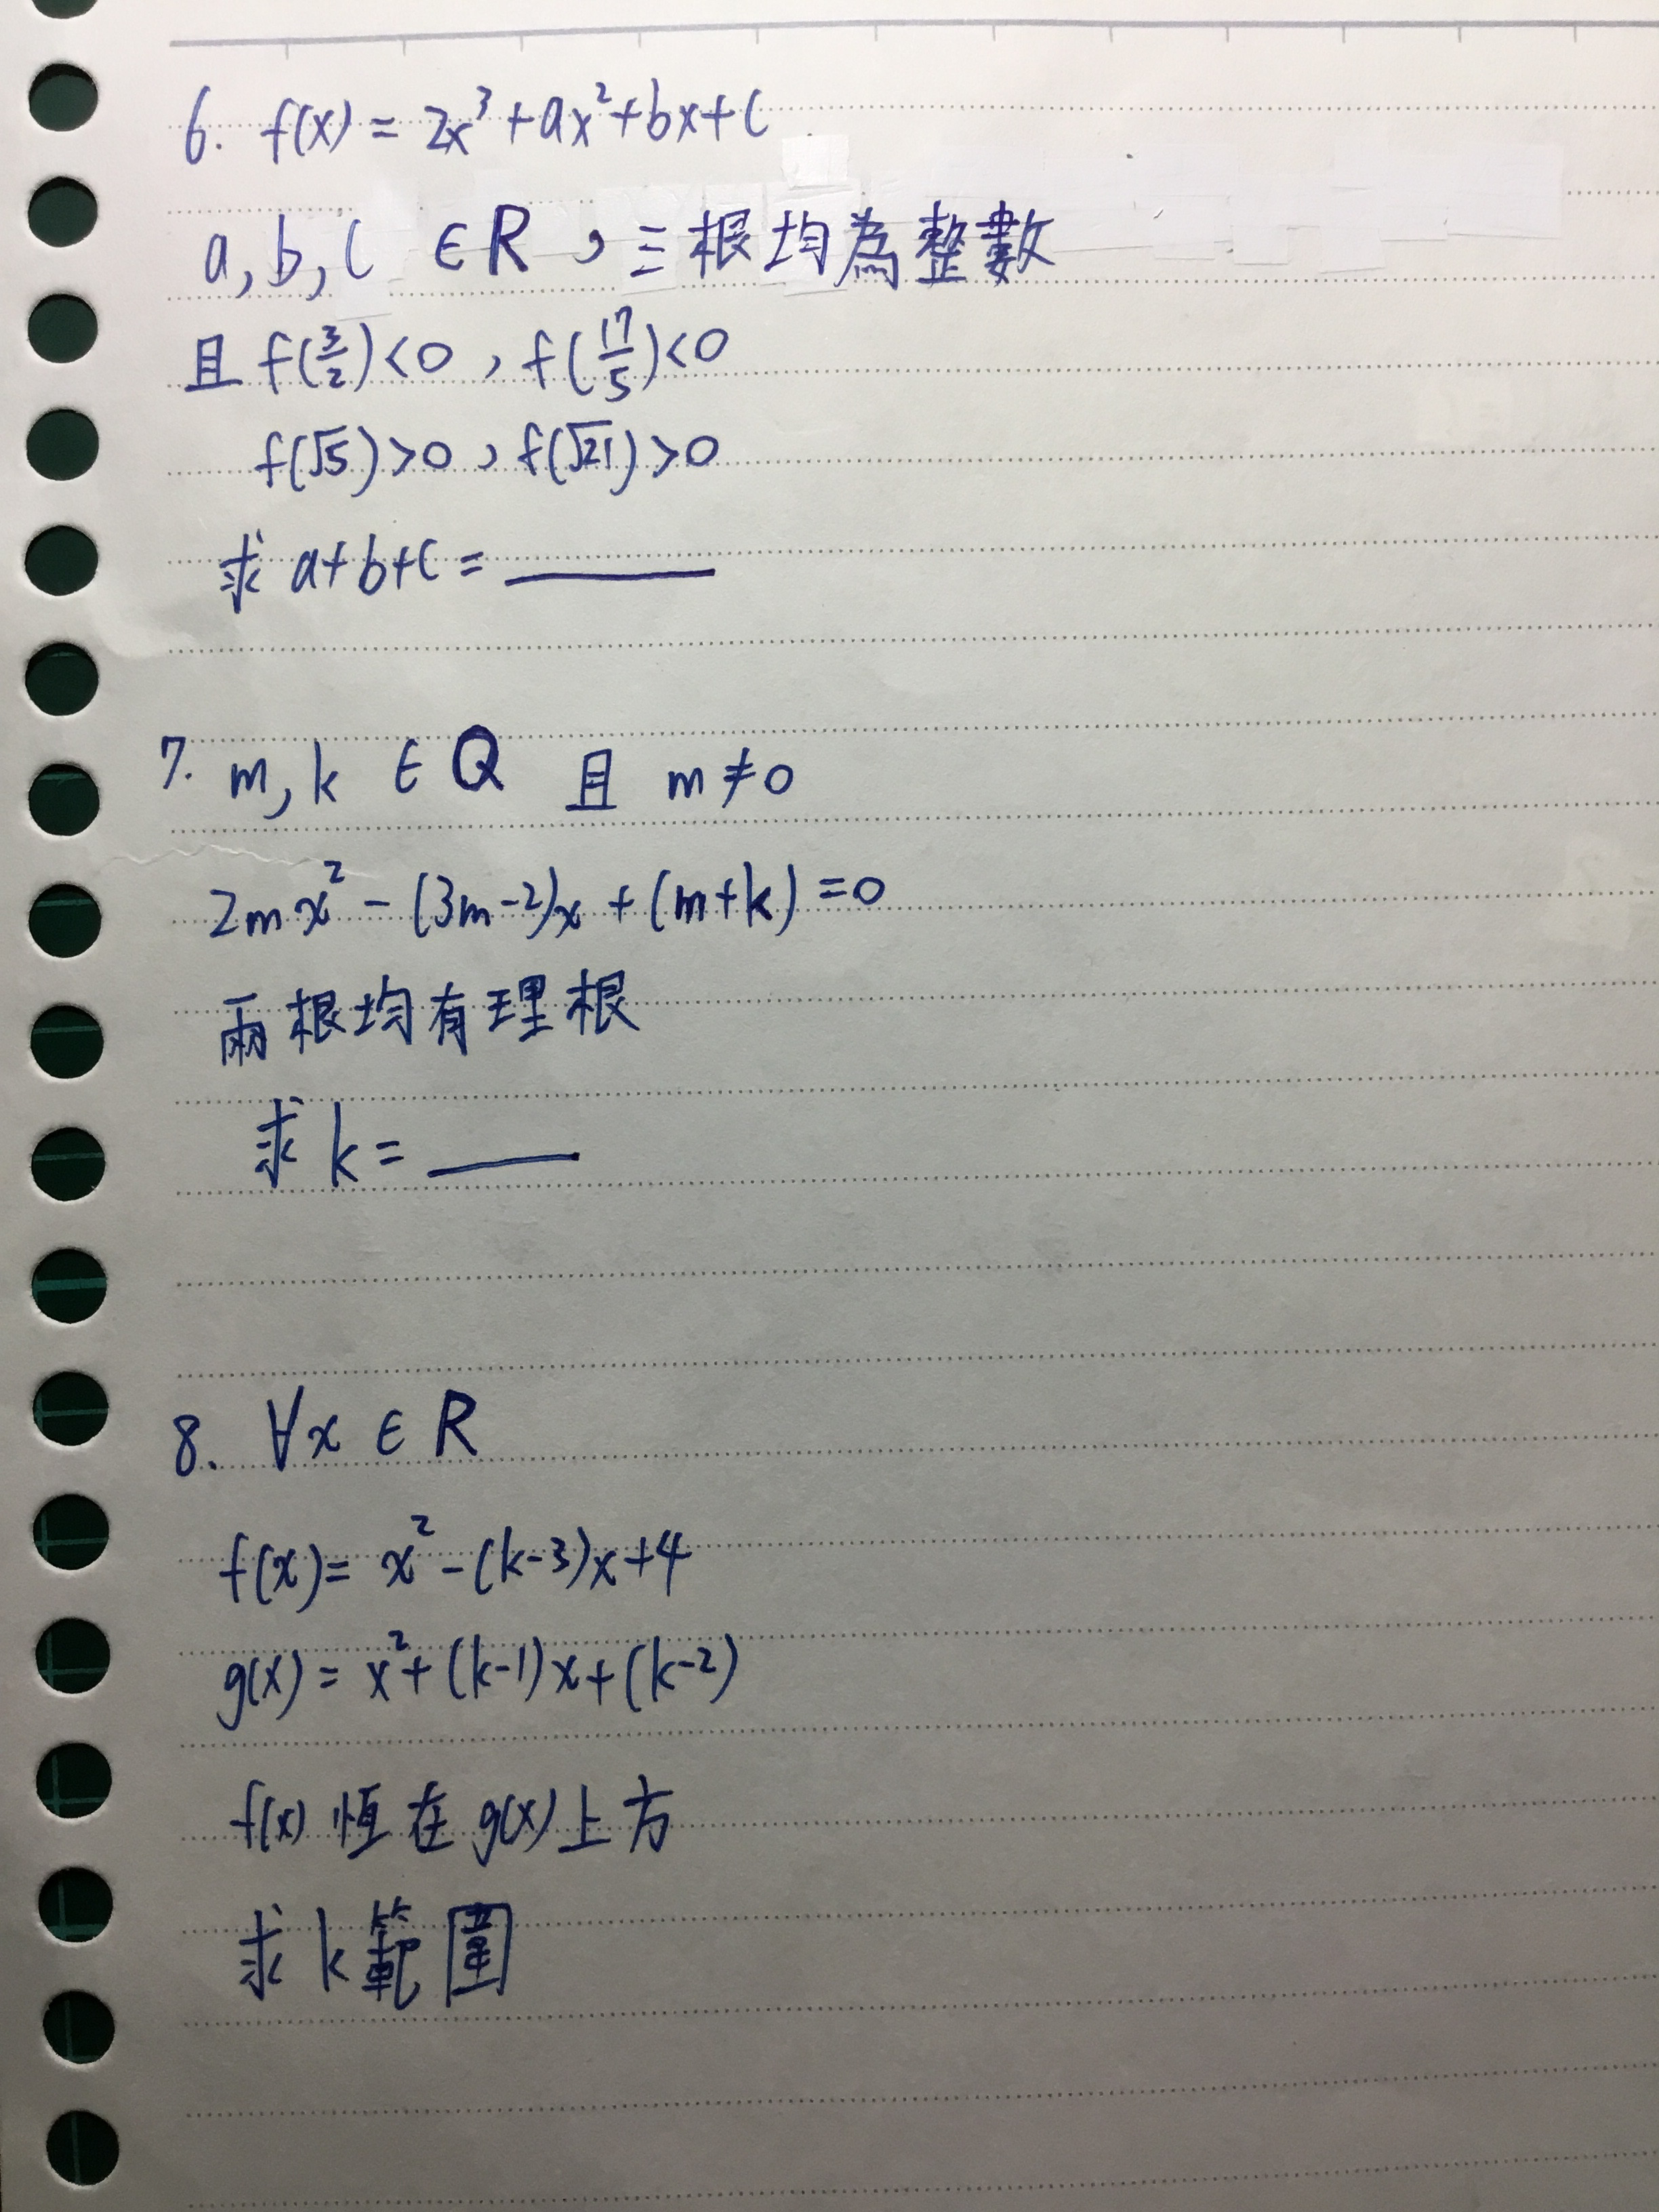 6. f(x) = 2x³+ax²+bx+c
a, b, c ∈R，三根均為整數
且 f(3/2)<0，f(17/5)<0
f(√5)>0，f(√21)>0
求 a+b+c = ______
7. m, k ∈ Q 且 m≠0
2mx² - (3m-2)x + (m+k) =0
兩根均有理根
求 k = ____
8. ∀x ∈ R
f(x)= x² -(k-3)x+4
g(x) = x²+(k-1)x+(k-2)
f(x) 恆在 g(x) 上方
求 k 範圍